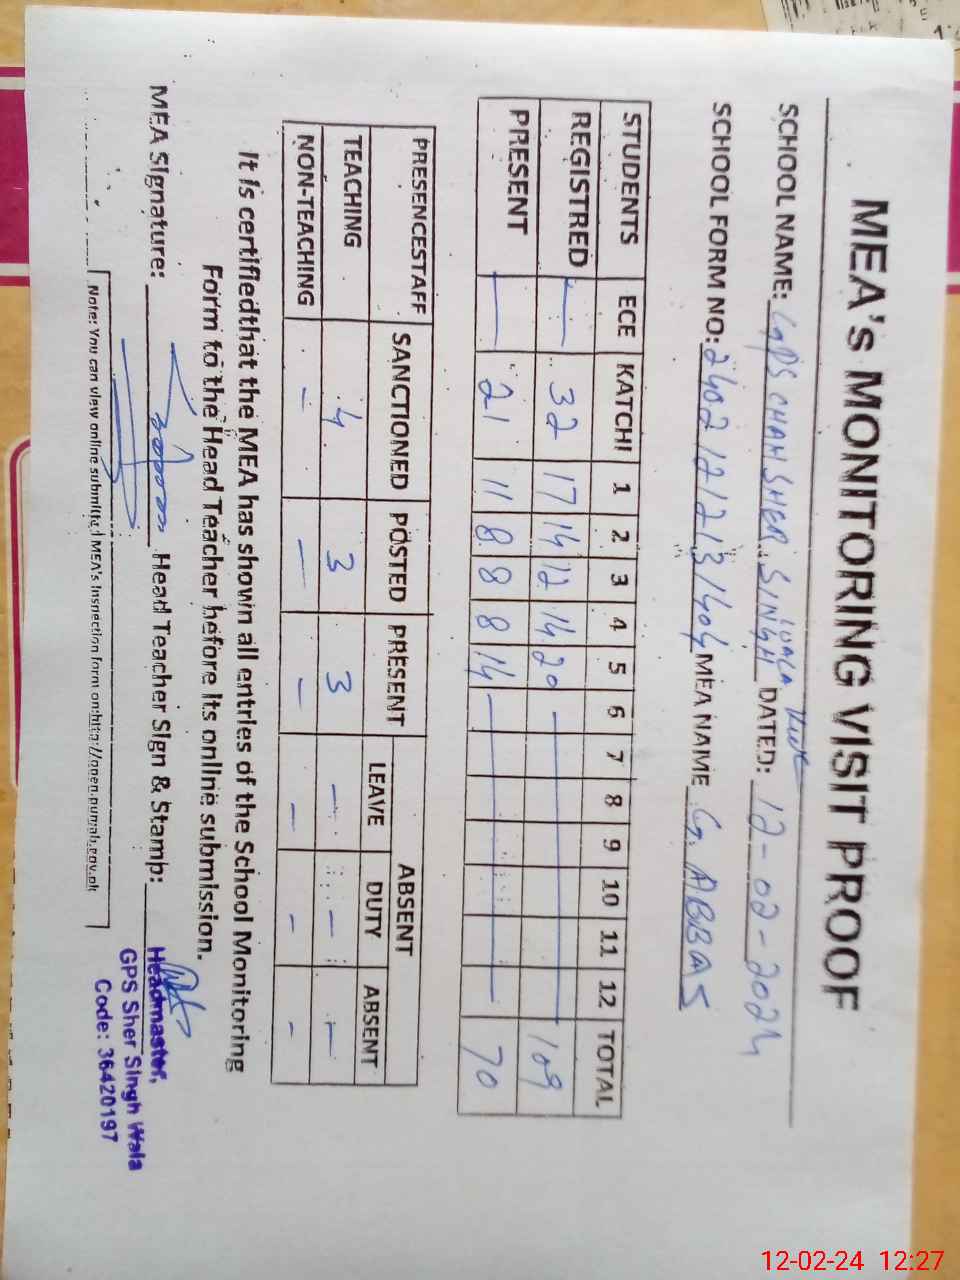 MEA's MONITORING VISIT PROOF
SCHOOL NAME: GPS CHAH SHER SINGH WALA DATED: 12-02-2024
SCHOOL FORM NO: MEA NAME G. ABBAS
STUDENTS ECE KATCHI 1 2 3 4 5 6 7 8 9 10 11 12 TOTAL
REGISTRED — 32 17 14 12 14 20 — 109
PRESENT — 21 11 8 8 8 14 — 70
PRESENCESTAFF SANCTIONED POSTED PRESENT ABSENT
LEAVE DUTY ABSENT
TEACHING 4 3 3 - - -
NON-TEACHING - - - - - -
It is certifiedthat the MEA has shown all entries of the School Monitoring
Form to the Head Teacher before its online submission.
MEA Signature: Head Teacher Sign & Stamp:
Headmaster,
GPS Sher Singh Wala
Code: 36420197
Note: You can view online submitted MEA's Inspection form on:http://open.punjab.gov.pk
12-02-24 12:27